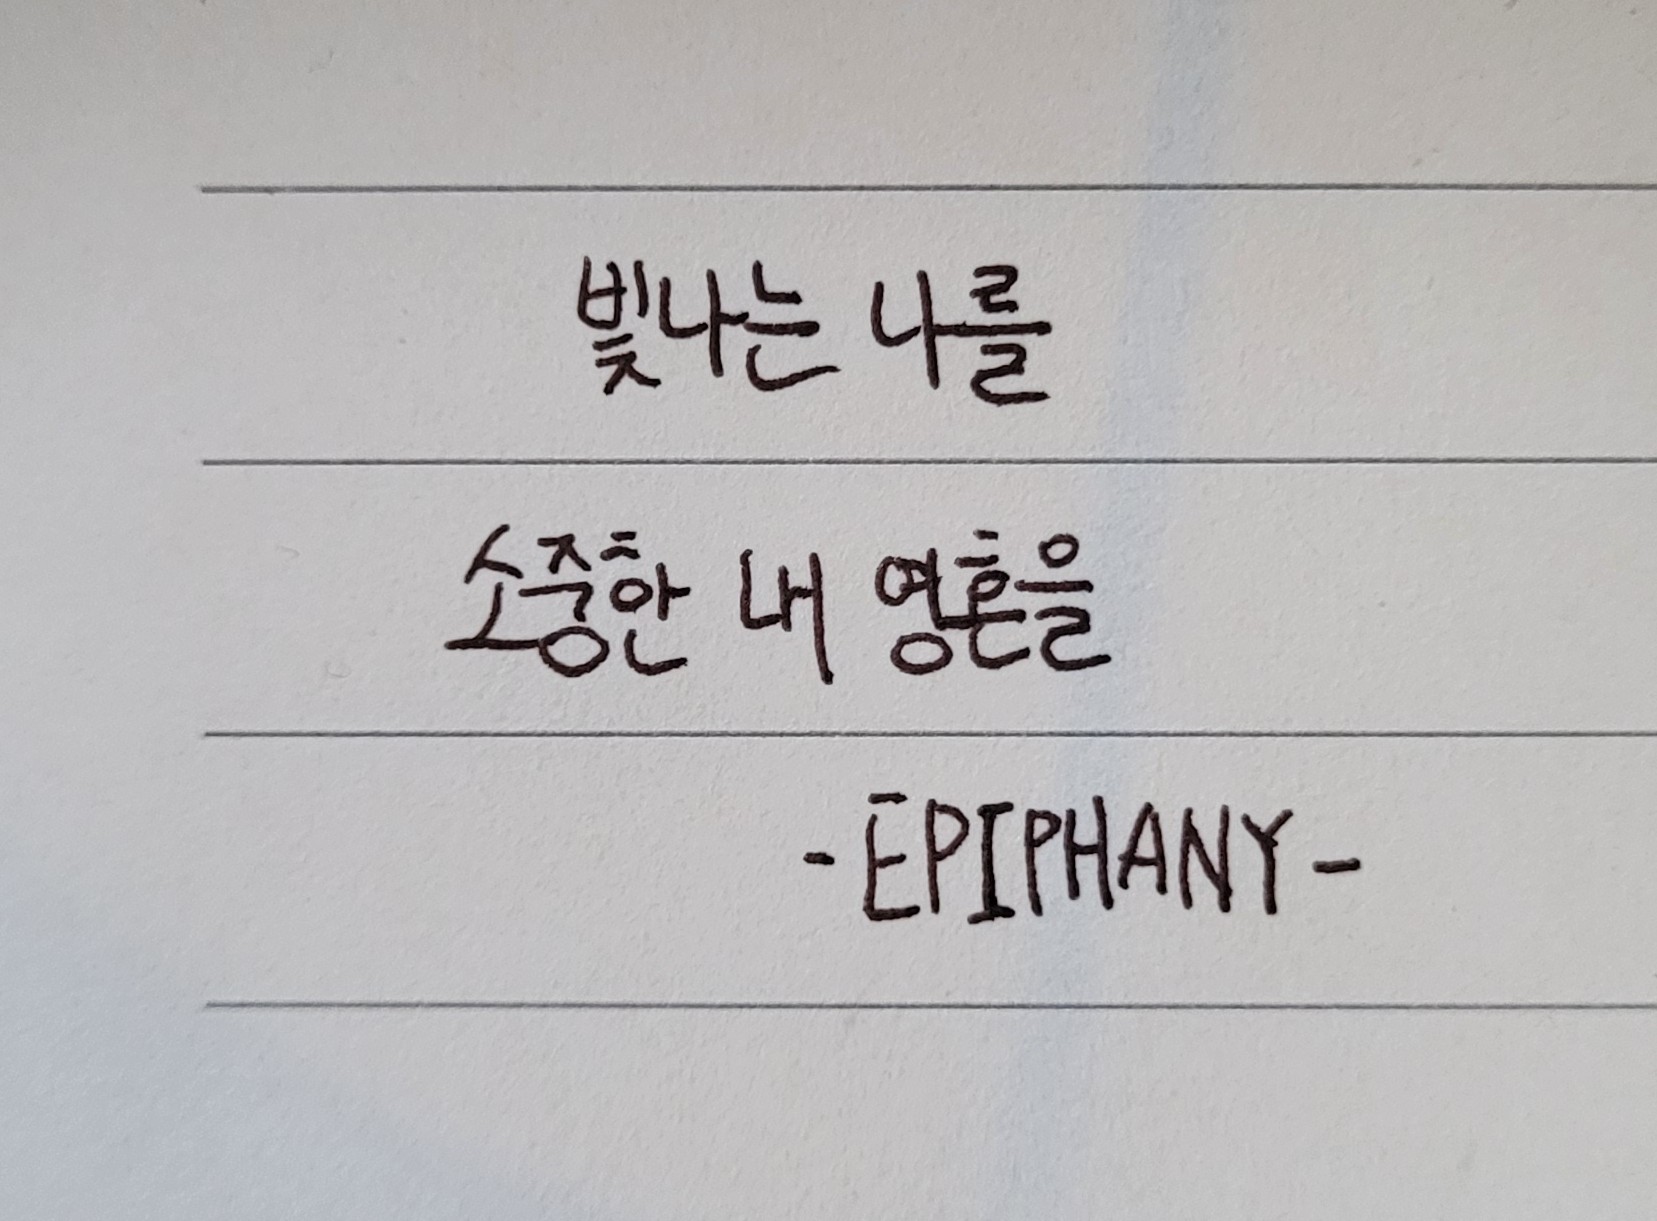 빛나는 나를
소중한 내 영혼을
-EPIPHANY-